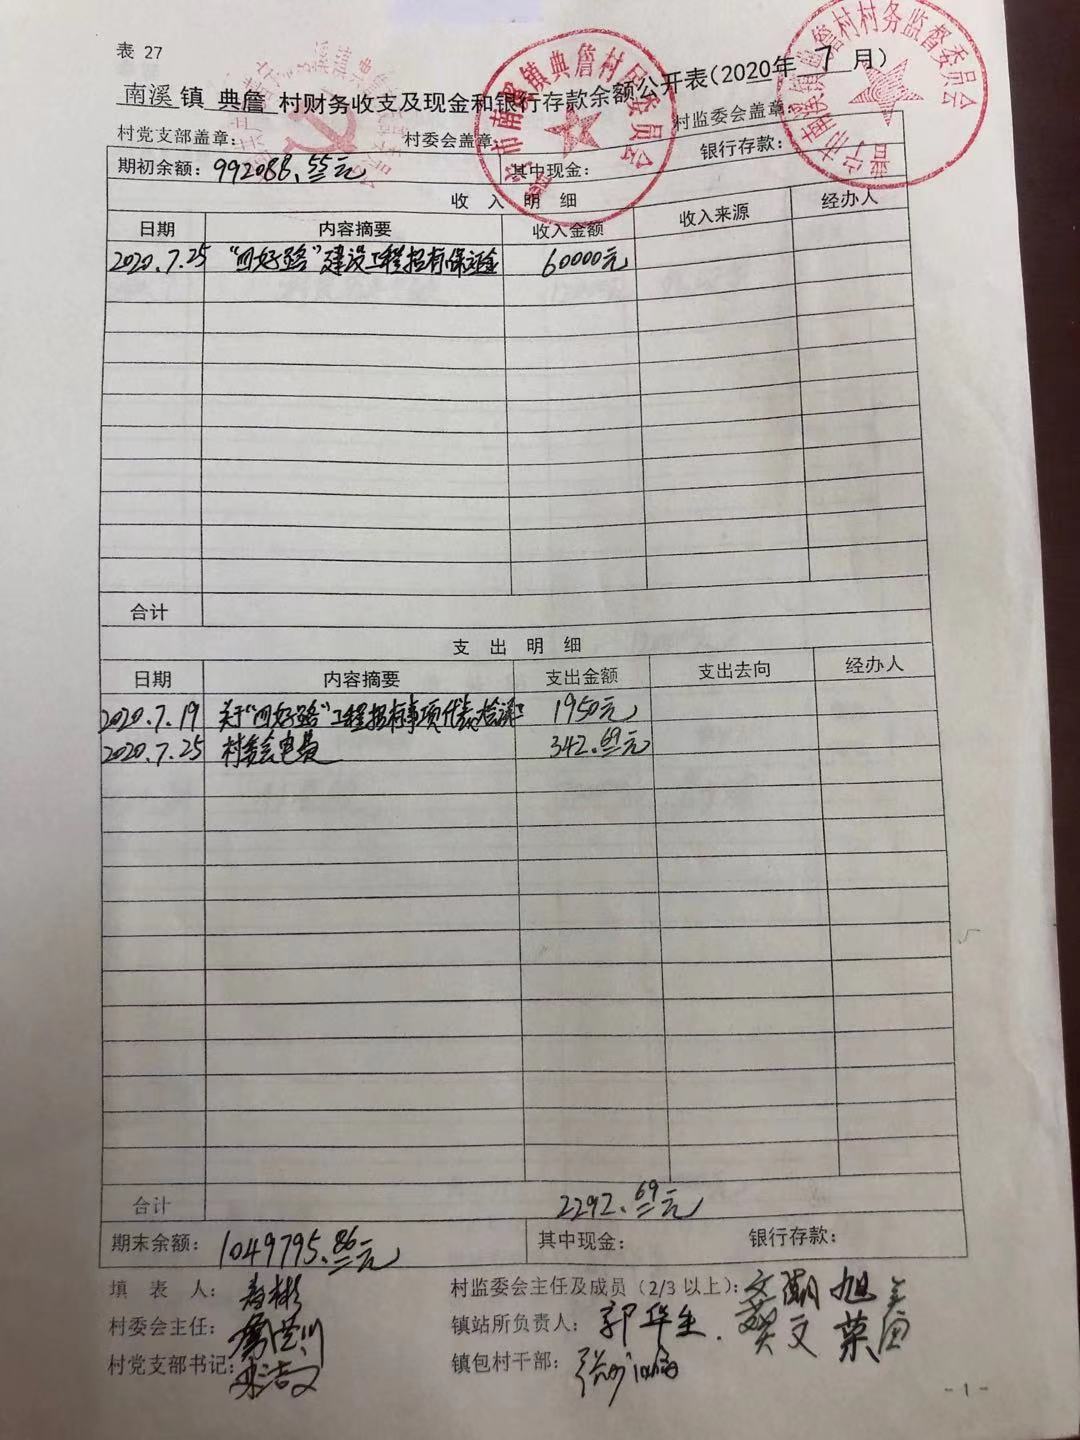 表 27
南溪 镇 典詹 村财务收支及现金和银行存款余额公开表(2020年 7 月)
村党支部盖章: 村委会盖章: 村监委会盖章:
期初余额: 992088.55元 其中现金: 银行存款:
收 入 明 细
日期 内容摘要 收入金额 收入来源 经办人
2020.7.25 "四好路"建设工程招标保证金 60000元
合计
支 出 明 细
日期 内容摘要 支出金额 支出去向 经办人
2020.7.19 关于"四好路"工程招标事项代表 1950元
2020.7.25 村委会电费 342.69元
合计 2292.69元
期末余额: 1049795.86元 其中现金: 银行存款:
填 表 人: 村监委会主任及成员(2/3 以上):
村委会主任: 镇站所负责人: 郭华生
村党支部书记: 镇包村干部:
- 1 -